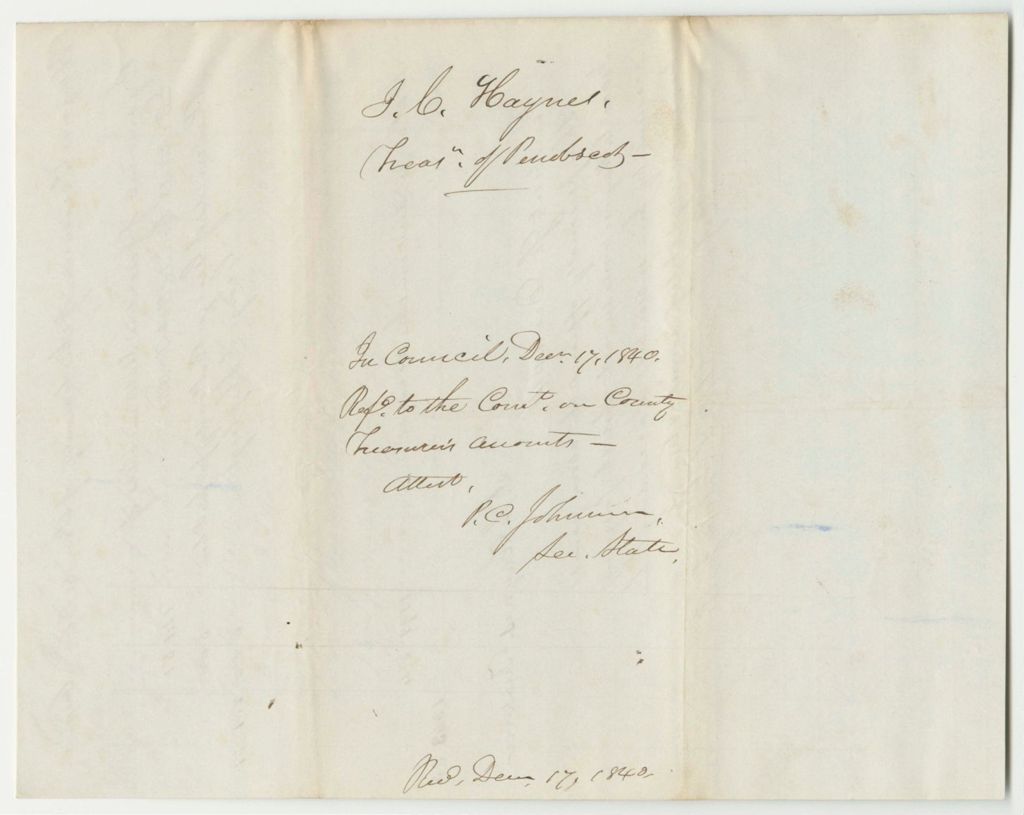 J. C. Haynes.
Treasr. of Penobscot —
In Council, Decr. 17, 1840.
Refd. to the Comte. on County
Treasurer's accounts —
Attest,
P. C. Johnson,
Sec. State.
Recd. Decr. 17, 1840.